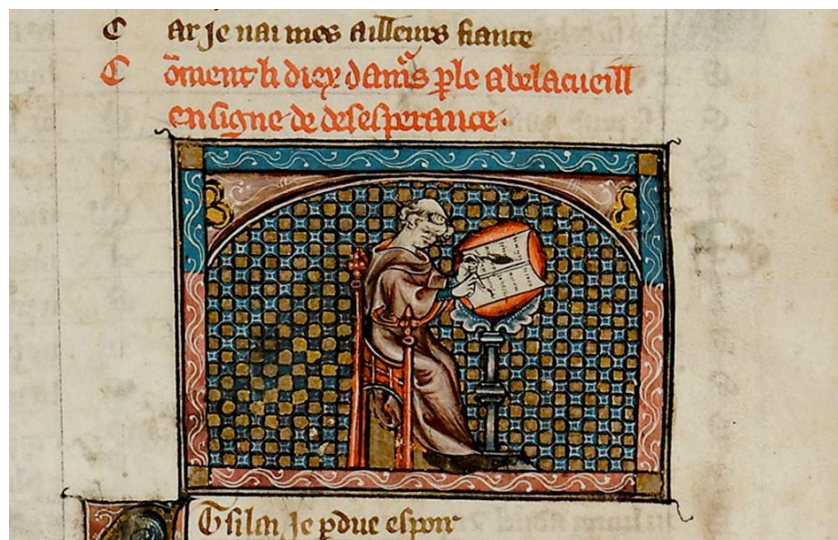 C ar Je nai mes ailleurs fiance
C õment li diex damͬs ꝑle a belacueill
en signe de desesperance.
Et si lai Je ꝑdue espoir